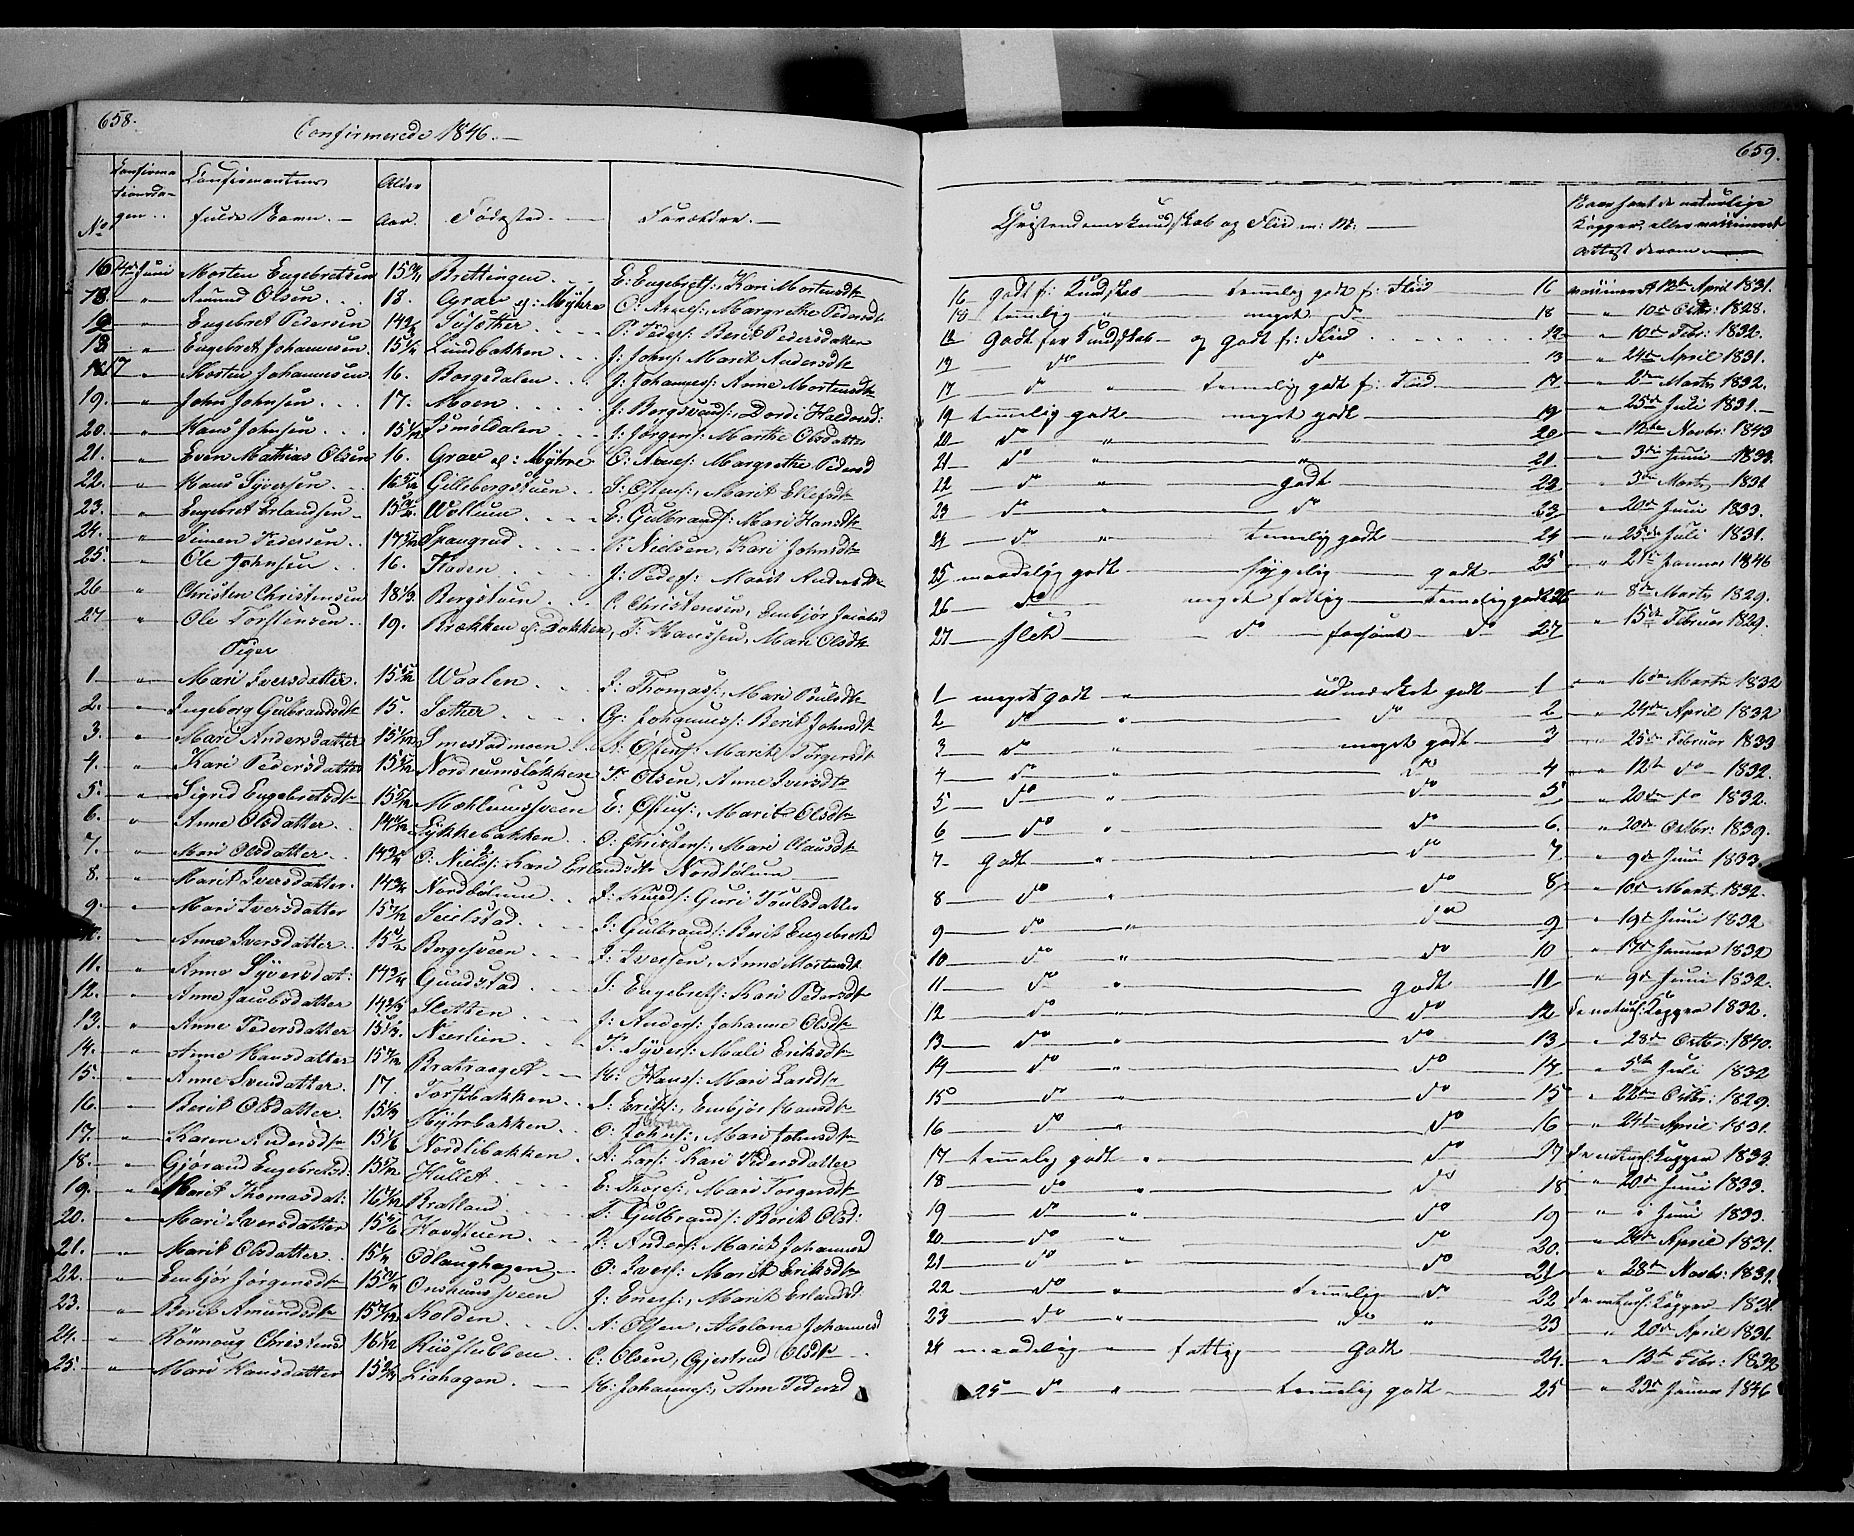 658.
Confirmerede 1846. —
No
Confirma
tionsda-
gen..
Confirmantens
fulde Navn. —
Alder
Aar.
Fødested. —
Forældre. —
16 4de Juni Morten Engebretsen 15 Brettingen . . E: Engebrets: Kari Mortensdt
18. „ Amund Olsen . . . 18. Grav ej: Myhre O: Arnes: Margrethe Pedersdt
12 „ Engebret Pedersen 14 Susæther . . . P: Peders: Berit Pedersdatter
13 „ Engebret Johannesen 15 1/4 Lundbakken . . . J: Johns: Marit Andersdt
17 „ Morten Johannesen 16. Borgedalen . . J: Johannes: Anne Mortensdt
19. „ John Johnsen . . . 17. Moen . . . . J: Bergsvends: Dord: Haldorsd:
20. „ Hans Johnsen . . . 15 Ismoldalen . . J: Jørgens: Marthe Olsdatter
21. „ Even Mathias Olsen 16. Grav ej: Myhre O: Arnes: Margrethe Pedersd
22. „ Hans Syversen . . 16 Gillebergstuen S: Ostens: Marit Ellefsdt
23. „ Engebret Erlandsen 15 Wollum . . . . E: Gulbrands: Mari Hansdt
24. „ Simen Pedersen . . 17 Spangrud . . . . P: Nielsen, Kari Johnsdt
25. „ Ole Johnsen . . 16. Floden . . . . J: Peders: Marit Andersdt
26 „ Christen Christensen 18 1/3. Bergstuen . . C: Christensen, Embjør Jacobsd
27 „ Ole Torstensen . . 19. Brækken ej: Dokken, T: Hanssen, Mari Olsdt
Piger
1. „ Mari Iversdatter. 15 Waalen . . . I: Thomass: Mari Poulsdt
2. „ Ingeborg Gulbrandsdt 15. Sæther . . . . G: Johannes: Berit Johnsdt
3. „ Mari Andersdatter 15 Smestadmoen . . A: Ostens: Marit Torgersdt
4. „ Kari Pedersdatter 15 Nordrumsløkken P: Olsen, Anne Iversdt
5. „ Sigrid Engebretsdt 15 Mæhlumsveen E: Ostens: Marit Olsdt
6. „ Anne Olsdatter . . 14 Lykkebakken . . O: Christens: Mari Clausdt
7. „ Mari Olsdatter . . 14 O: Niels: Kari Erlandsdt Nordbølum
8. „ Marit Iversdatter. 14 3/4 Nordbølum . . I: Knuds: Guri Poulsdatter
9. „ Mari Iversdatter 15 Seielstad . . . I: Gulbrands: Berit Engebretsd
10. Anne Iversdatter. 15 Borgesveen . . I: Iversen, Anne Mortensdt
11. „ Anne Syversdat: 14 3/4 Gundstad . . . S: Engebrets: Kari Pedersdt
12. „ Anne Jacobsdatter 14 Sletten . . . J: Anders: Johanne Olsdt
13. „ Anne Pedersdatter 15 1/3. Neerlien . . . P: Syvers: Mali Eriksdt
14. „ Anne Hansdatter 15 Bratraaget — H: Hanss: Mari Larsdt
15. „ Anne Svendatter. 17. Torstbakken . . S: Eriks: Embjør Hansdt
16. „ Berit Olsdatter 15 1/3 Myhrbakken . . O: Johns: Mari Johnsdt
17. „ Karen Andersdt 15 1/6 Nordlibakken . . A: Lars: Kari Pedersdatter
18. „ Gjørand Engebretsd. 15 Hullet . . . E: Thores: Mari Torgersdt
19. „ Marit Thomasdat: 16 Bratland . . . T: Gulbrands: Berit Olsd:
20. „ Mari Iversdatter 15 Havdstuen . . I: Anders: Marit Johannesd
21. „ Marit Olsdatter . . 15 1/4 Odlaughagen — O: Ivers: Marit Eriksdt
22. „ Embjør Jørgensdt 15 Onshuussveen J: Eners: Marit Erlandsd.
23. „ Berit Amundsdt 15 Kolden . . . A: Olsen, Malene Johannesd
24. „ Rønnoug Christensd 16 Kiusstubben . . C: Olsen, Gjertrud Olsdt
25. „ Mari Hansdatter 15 3/4 Liehagen . — H: Johannes: Anne Pedersd
659.
Christendomskundskab og Fliid m: M: —
Naar havt de naturlige
Kopper, eller vaccineret
Attest derom —
16 Godt f: Kundskab — temelig godt f: Fliid — 16 vaccineret 12te April 1831.
18 temelig „ — meget do — 18 „ 10de Octbr: 1828.
12 Godt for Kundskab — og godt f: Fliid . . . . 12 „ 10de Febr: 1832.
13 do do 13 „ 24de April 1831.
17 do „ temelig godt f: Fliid — 17 „ 2den Marts 1832.
19 temelig godt — meget godt — 19 „ 25de Juli 1831. —
20 do „ „ 20 „ 12te Novbr: 1843
21 do „ „ 21 „ 3de Juni 1833.
22 do „ godt 22 „ 3de Marts 1831
23 do „ do 23 „ 20de Juni 1833.
24 do „ temelig godt 24 „ 25de Juli 1831.
25 maadelig godt — sygelig — godt — 25 „ 21de Januar 1846
26 do — meget fattig — temelig godt 26 „ 8de Marts 1829.
27 slet — do — forsømt — do 27 „ 15de Februar 1829.
1 meget godt „ — udmærket godt — 1 „ „ 16de Marts 1832
2 do „ — do — 2 „ 24de April 1832
3 do „ — meget godt — 3 „ 25de Februar 1833
4 do „ — do — 4 „ 12te do 1832.
5 do „ — do — 5 „ 20de do 1832.
6 do „ — do — 6. „ 20de Octbr: 1839.
7 Godt „ — do — 7 „ 9de Juni 1833.
8 do — do — 8 „ 10de Mart. 1832.
9 do „ — do — 9 „ 19de Juni 1832
10 do „ — do — 10 „ 17de Januar 1832
11 do „ — godt — 11 „ 9de Juni 1832.
12 do „ — do — 12 de naturl: Kopper 1832.
13 do „ — do — 13 „ 28de Octbr: 1840.
14 do „ — do — 14 „ 5te Juli 1832
15 do „ — do — 15 „ 22de Octbr: 1829.
16 do „ — do — 16 „ 24de April 1831.
17 temelig godt „ — do — 17 de naturl: Kopper 1833.
18 do „ — do — 18 „ 20de Juni 1833.
19 do „ — do — 19 „ „ Juni 1833.
20 do „ — do — 20. „ 24de April 1831.
21 do „ — do — 21 „ 28de Novbr: 1831.
22 do „ — temelig do — 22 de naturl: Kopper 1831.
23 do „ — do „ — 23 „ 20de April 1831.
24 maadelig — fattig — Godt — 24. „ 12te Febr: 1832
25 do „ — temelig godt — 25 „ 23de Januar 1846